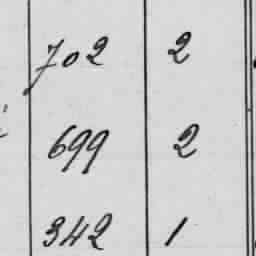 702 2
699 2
342 1